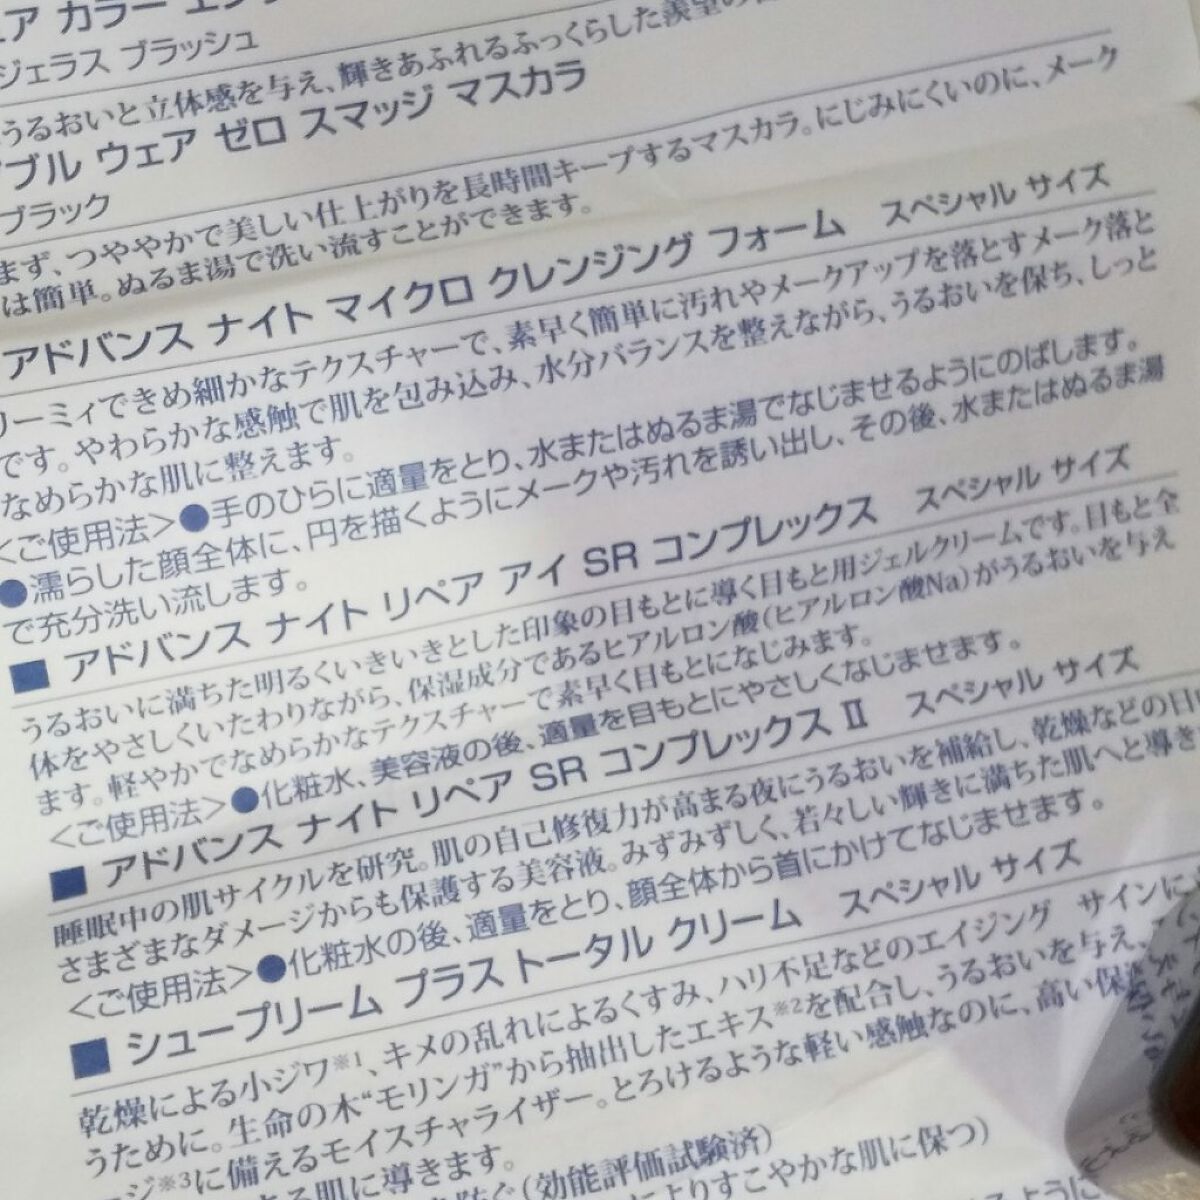 ェア カラー
ジェラス ブラッシュ
うるおいと立体感を与え、輝きあふれるふっくらした羨望の
ブル ウェア ゼロ スマッジ マスカラ
ブラック
まず、つややかで美しい仕上がりを長時間キープするマスカラ。にじみにくいのに、メーク
は簡単。ぬるま湯で洗い流すことができます。
アドバンス ナイト マイクロ クレンジング フォーム スペシャル サイズ
リーミィできめ細かなテクスチャーで、素早く簡単に汚れやメークアップを落とすメーク落と
です。やわらかな感触で肌を包み込み、水分バランスを整えながら、うるおいを保ち、しっと
なめらかな肌に整えます。
＜ご使用法＞●手のひらに適量をとり、水またはぬるま湯でなじませるようにのばします。
●濡らした顔全体に、円を描くようにメークや汚れを誘い出し、その後、水またはぬるま湯
で充分洗い流します。
■ アドバンス ナイト リペア アイ SR コンプレックス スペシャル サイズ
うるおいに満ちた明るくいきいきとした印象の目もとに導く目もと用ジェルクリームです。目もと全
体をやさしくいたわりながら、保湿成分であるヒアルロン酸(ヒアルロン酸Na)がうるおいを与え
ます。軽やかでなめらかなテクスチャーで素早く目もとになじみます。
＜ご使用法＞●化粧水、美容液の後、適量を目もとにやさしくなじませます。
■ アドバンス ナイト リペア SR コンプレックス II スペシャル サイズ
睡眠中の肌サイクルを研究。肌の自己修復力が高まる夜にうるおいを補給し、乾燥などの日
さまざまなダメージからも保護する美容液。みずみずしく、若々しい輝きに満ちた肌へと導き
＜ご使用法＞●化粧水の後、適量をとり、顔全体から首にかけてなじませます。
■ シュープリーム プラス トータル クリーム スペシャル サイズ
乾燥による小ジワ※1、キメの乱れによるくすみ、ハリ不足などのエイジング サインに、
うために。生命の木“モリンガ”から抽出したエキス※2を配合し、うるおいを与え、
ージ※3に備えるモイスチャライザー。とろけるような軽い感触なのに、高い保
る肌に導きます。
(効能評価試験済)
よりすこやかな肌に保つ)